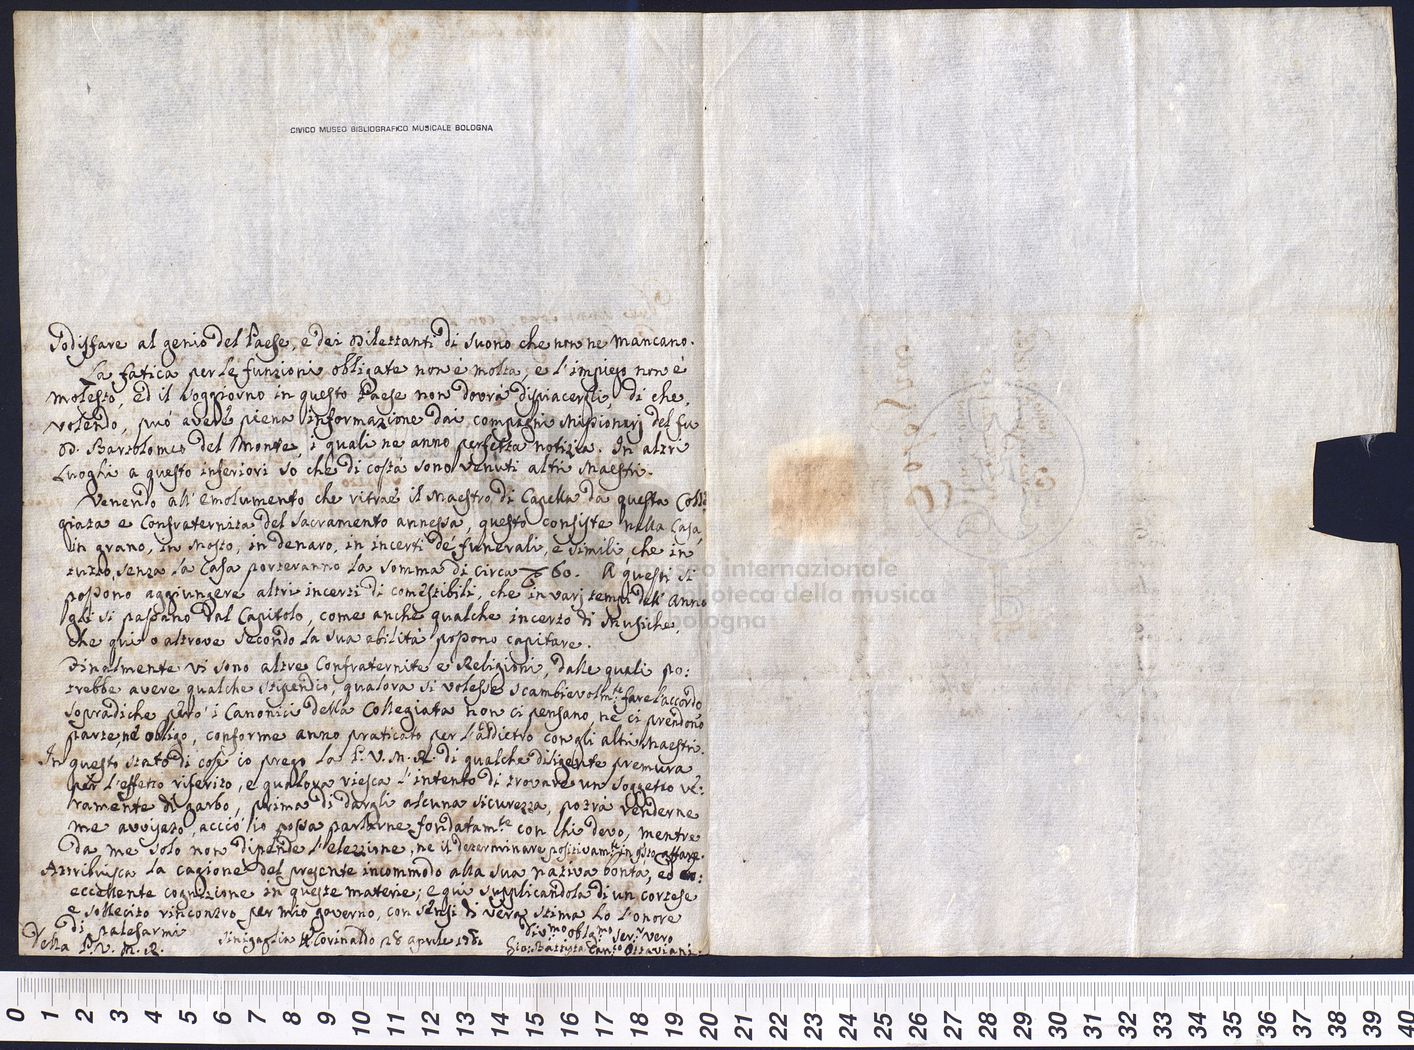 CIVICO MUSEO BIBLIOGRAFICO MUSICALE BOLOGNA
Sodisfare al genio del Paese, e dei Dilettanti di Suono che non ne mancano.
La fatica per le funzioni obligate non è molta, e l'impiego non è
molesto, ed il Soggiorno in questo Paese non dovrà dispiacergli, di che,
volendo, può avere piena informazione dai compagni Missionarj del fu
D. Bartolomeo del Monte, i quali ne anno perfetta notizia. In altri
Luoghi a questo inferiori so che di costà sono venuti altri Maestri.
Venendo all'emolumento che ritrae il Maestro di Capella da questa Colle
giata e Confraternita del Sacramento annessa, questo consiste nella Casa,
in grano, in Mosto, in denaro, in incerti de' funerali, e simili, che in
tutto, senza la Casa porteranno la somma di circa 60. A questi si
possono aggiungere altri incerti di comestibili, che in varj tempi dell'Anno
gli si passano dal Capitolo, come anche qualche incerto di Musiche,
che qui o altrove secondo la sua abilità possono capitare.
Finalmente vi sono altre Confraternite e Religioni, dalle quali po:
trebbe avere qualche stipendio, qualora si volesse scambievolm.te fare l'accordo
sopradiche però i Canonici della Collegiata non ci pensano, nè ci prendono
parte, nè obligo, conforme anno praticato per l'addietro con gli altri Maestri.
In questo stato di cose io prego la P. V. M. R. di qualche diligente premura
per l'effetto riferito, e qualora riesca l'intento di trovare un Soggetto ve:
ramente di garbo, prima di dargli alcuna sicurezza, potrà renderne
me avvisato, acciò io possa parlarne fondatam.te con chi devo, mentre
da me solo non dipende l'elezzione, ne il determinare positivam.te in q.sto affare.
Attribuisca la cagione del presente incommodo alla sua nativa bontà, ed
eccellente cognizione in queste materie; e qui supplicandola di un cortese
e sollecito riscontro per mio governo, con sensi di vera stima ho l'onore
di palesarmi
Della P. V. M. R.
Sinigaglia Corinaldo 28 aprile
Div.mo Obbl.mo Ser.r vero
Gio: Battista Can.co Ottaviani
museo internazionale
biblioteca della musica
bologna
0 1 2 3 4 5 6 7 8 9 10 11 12 13 14 15 16 17 18 19 20 21 22 23 24 25 26 27 28 29 30 31 32 33 34 35 36 37 38 39 40